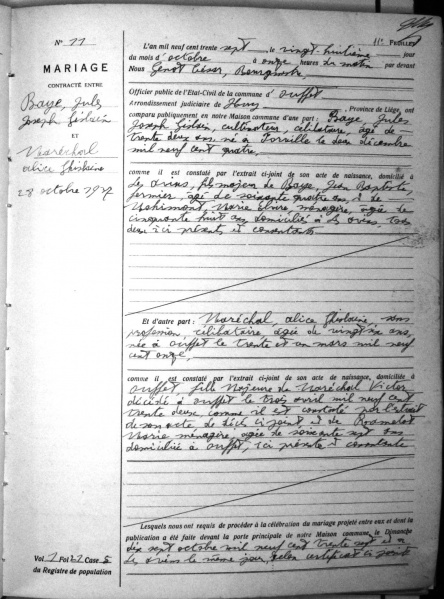 N° 11
11e FEUILLET
MARIAGE
CONTRACTÉ ENTRE
Baye, Jules
Joseph Ghislain
ET
Maréchal
Alice Ghislaine
28 octobre 1937
L'an mil neuf cent trente sept, le vingt-huitième jour
du mois d'octobre à onze heures du matin par devant
Nous Genot César, Bourgmestre
Officier public de l'Etat-Civil de la commune d'Ouffet
Arrondissement judiciaire de Huy, Province de Liége, ont
comparu publiquement en notre Maison commune d'une part : Baye, Jules
Joseph Ghislain, cultivateur, célibataire, âgé de
trente deux ans, né à Forville le deux décembre
mil neuf cent quatre.
comme il est constaté par l'extrait ci-joint de son acte de naissance, domicilié à
Les Avins, fils majeur de Baye, Jean Baptiste,
fermier, âgé de soixante quatre ans, et de
Marie ménagère, âgée de
cinquante huit ans, domiciliés à Les Avins, tous
deux ici présents et consentants
Et d'autre part : Maréchal, Alice Ghislaine, sans
profession, célibataire âgée de vingt six ans,
née à Ouffet le trente et un mars mil neuf
cent onze,
comme il est constaté par l'extrait ci-joint de son acte de naissance, domiciliée à
Ouffet, fille Majeure de Maréchal Victor
décédé à Ouffet le trois avril mil neuf cent
trente deux, comme il est constaté par l'extrait
de son acte de décès ci-joint, et de
Marie ménagère, âgée de soixante sept ans
domiciliée à Ouffet, ici présente et consentante
Lesquels nous ont requis de procéder à la célébration du mariage projeté entre eux et dont la
publication a été faite devant la porte principale de notre Maison commune, le Dimanche
dix sept octobre mil neuf cent trente sept et à
Les Avins le même jour, selon certificat ci-joint
Vol 1 Fol 27 Case 5
du Registre de population